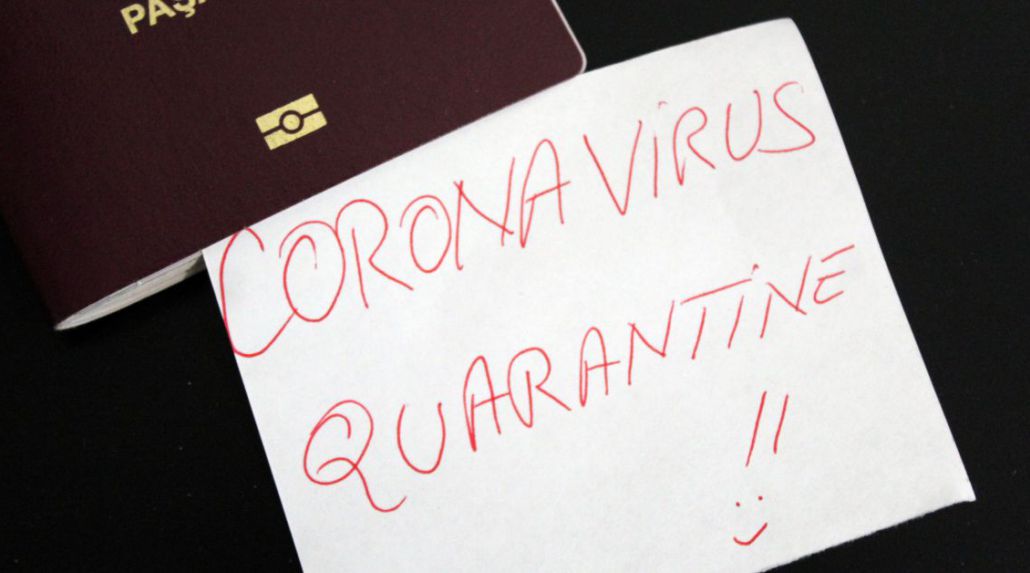 CORONAVİRUS
QUARANTİNE
!!